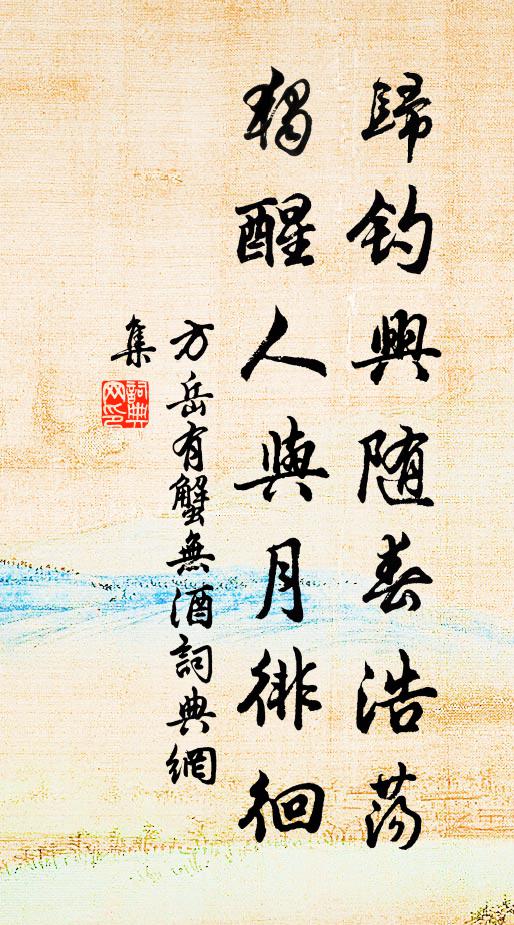 歸钓興随春浩荡
獨醒人與月徘徊
方岳有蟹無酒詞典網
集
詞典
网印